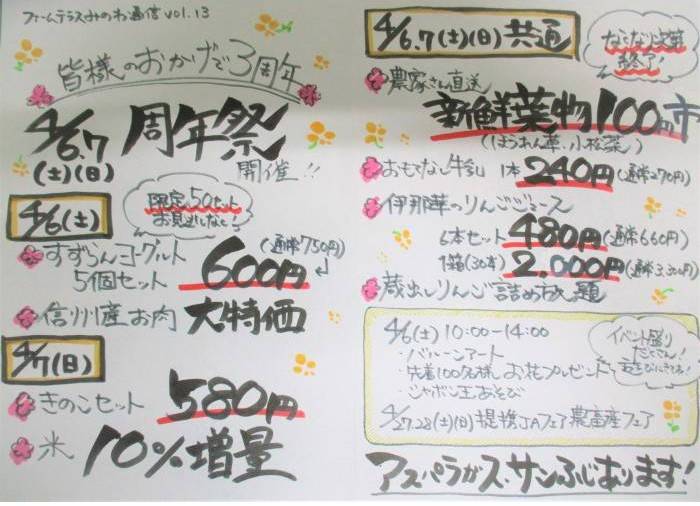 ファームテラスみのわ通信 vol.13
皆様のおかげで3周年
4/6.7
(土)(日)
周年祭
開催!!
4/6(土)
限定50セット
お見逃しなく!
すずらんヨーグルト
5個セット
(通常750円)
600円
信州産お肉 大特価
4/7(日)
きのこセット 580円
米 10%増量
4/6.7(土)(日)共通
なくなり次第
終了!
農家さん直送
新鮮葉物100円市
(ほうれん草、小松菜)
おもてなし牛乳 1本 240円(通常270円)
伊那華のりんごジュース
6本セット 480円(通常660円)
1箱(30本) 2,000円(通常3,300円)
蔵出しりんご詰め放題
4/6(土) 10:00-14:00
・バルーンアート
・先着100名様 お花プレゼント
・シャボン玉あそび
イベント盛り
だくさん!
4/27.28(土)(日)提携JAフェア農畜産フェア
アスパラガス、サンふじあります!